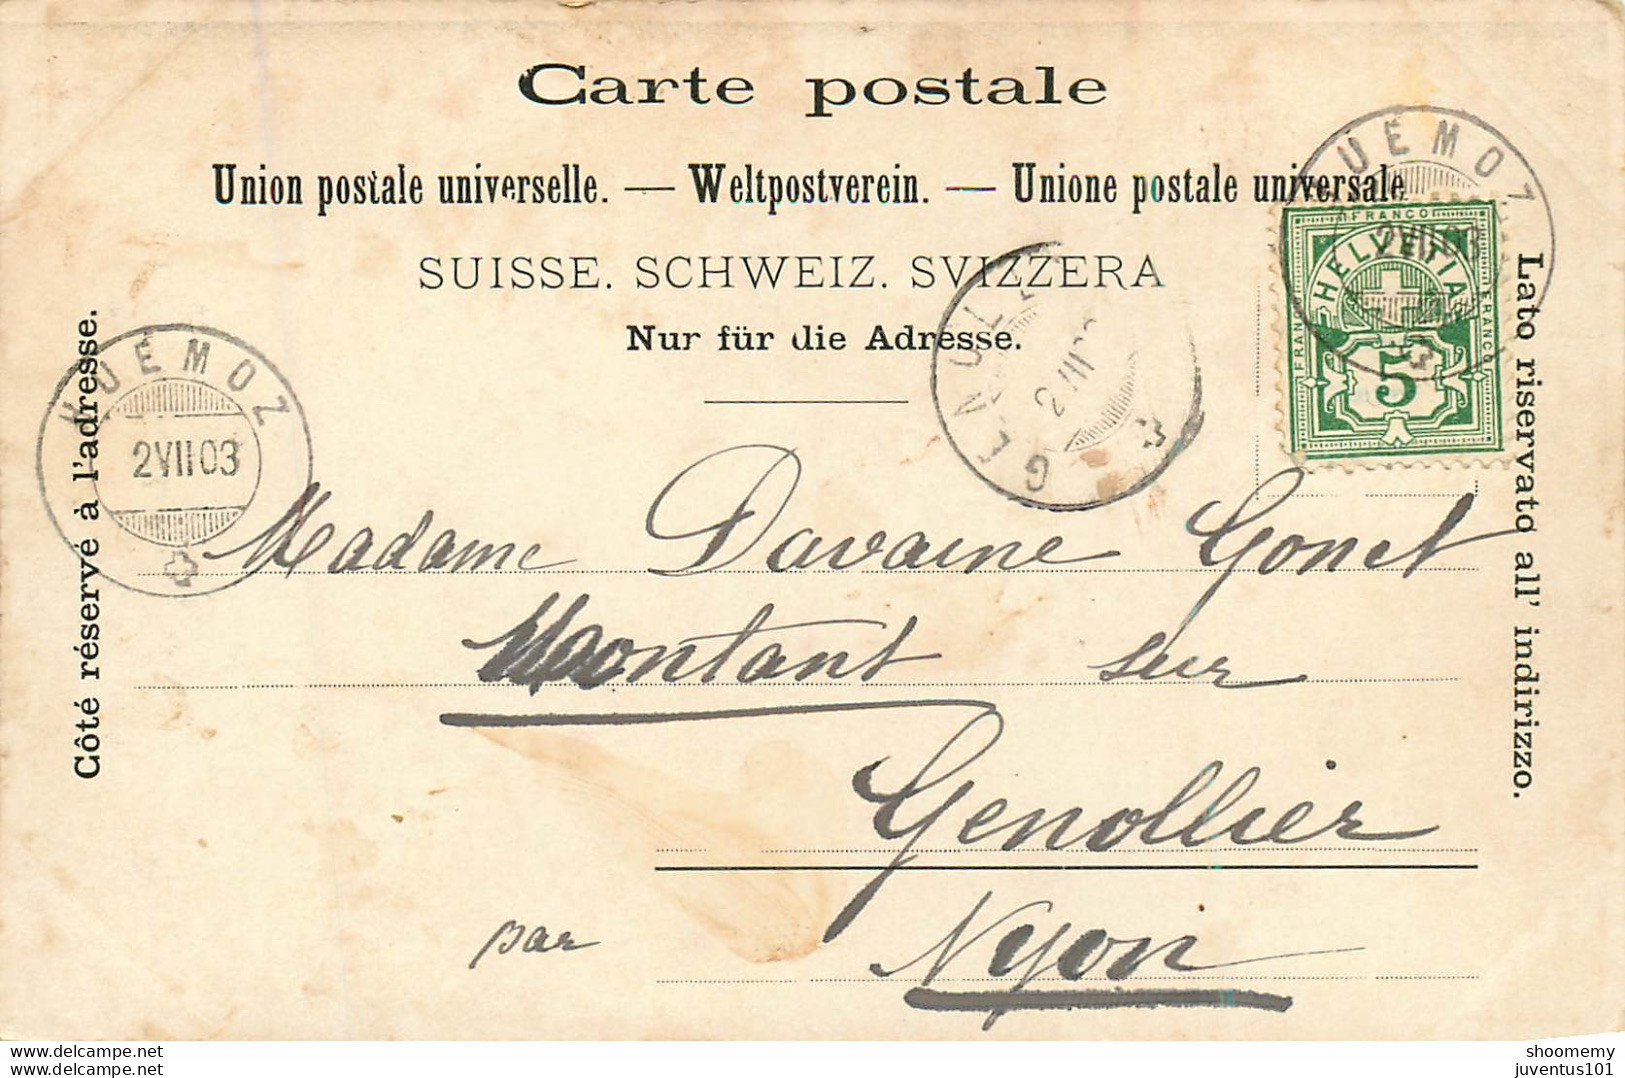 Carte postale
Union postale universelle. — Weltpostverein. — Unione postale universale
SUISSE. SCHWEIZ. SVIZZERA
Nur für die Adresse.
Côté réservé à l'adresse.
Lato riservato all' indirizzo.
HUÉMOZ
2VII03
HUÉMOZ
2VII03
FRANCO
HELVETIA
FRANCO
FRANCO
5
Madame Davaine Gonet
Montant sur
Genollier
par Nyon
shoomemy
juventus101